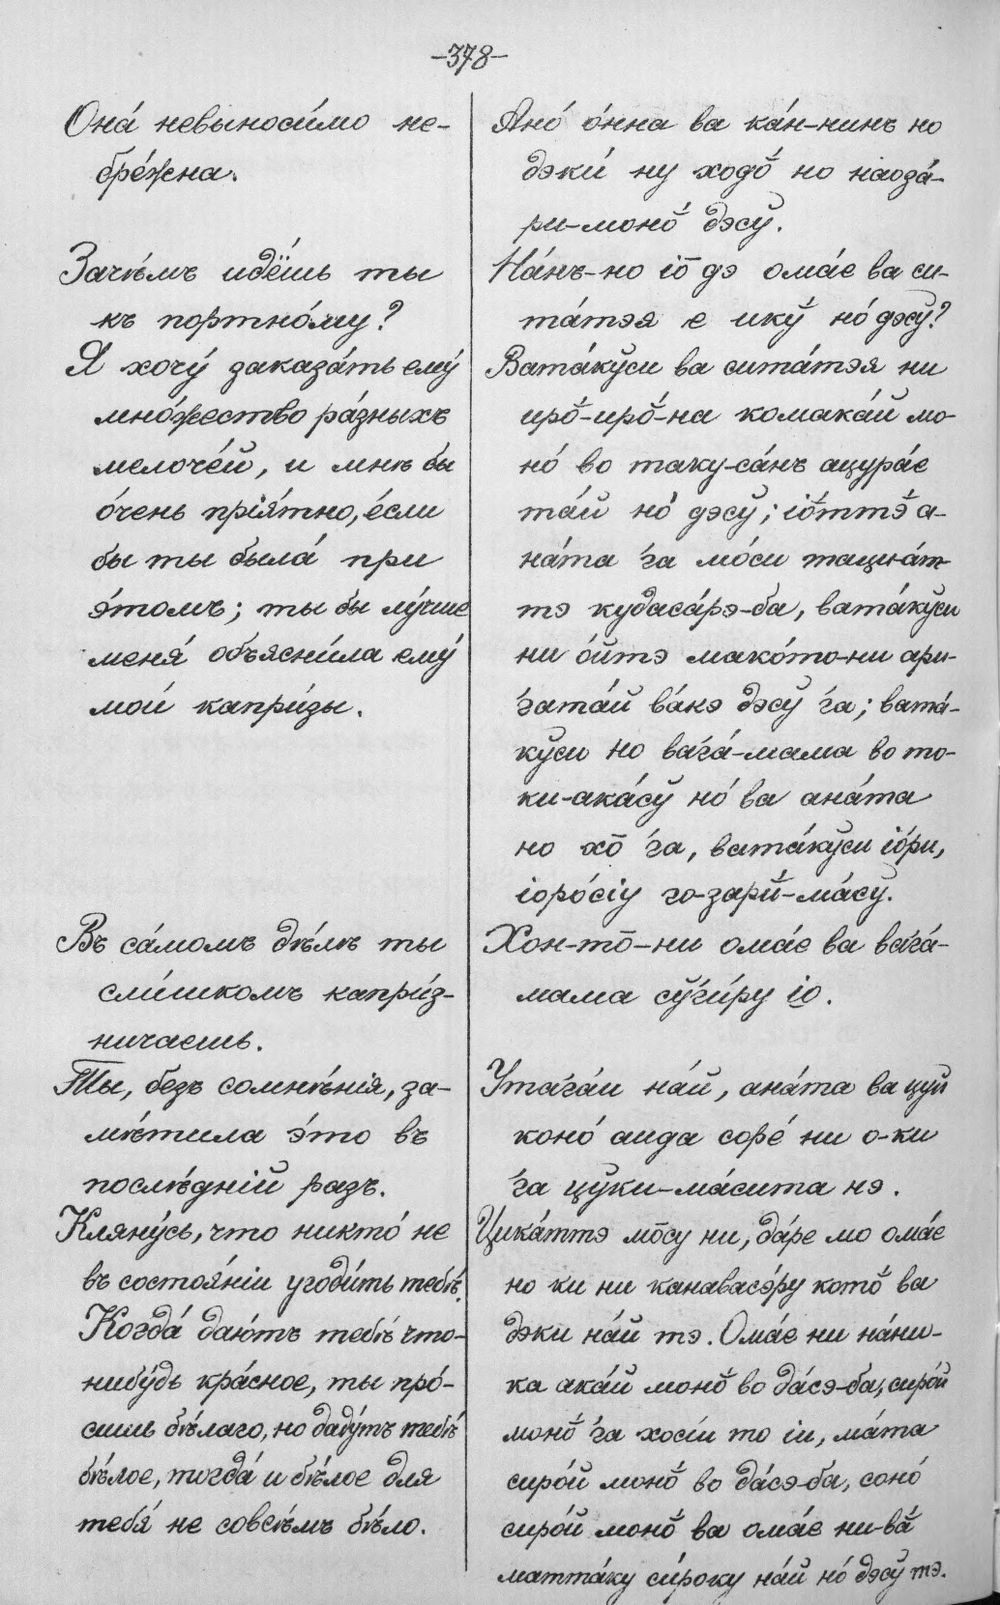 –378–
Она́ невыноси́мо не-
бре́жна.
Зачѣ́мъ идёшь ты
къ портно́му?
Я хочу́ заказа́ть ему́
мно́жество ра́зныхъ
мелоче́й, и мнѣ бы
о́чень прія́тно, е́сли
бы ты была́ при
э́томъ; ты бы лу́чше
меня́ объясни́ла ему́
мои́ капри́зы.
Въ са́момъ дѣ́лѣ ты
сли́шкомъ капри́з-
ничаешь.
Ты, безъ сомнѣ́нія, за-
мѣ́тила э́то въ
послѣ́дній разъ.
Кляну́сь, что никто́ не
въ состоя́ніи угоди́ть тебѣ́.
Когда́ даю́тъ тебѣ́ что-
нибу́дь кра́сное, ты про́-
сишь бѣ́лаго, но даду́тъ тебѣ́
бѣ́лое, тогда́ и бѣ́лое для
тебя́ не совсѣ́мъ бѣ́ло.
Ано́ о́нна ва ка́н-нинъ но
дэки́ ну ходо̄́ но наоза́-
ри-моно̄́ дэсў.
На́нъ-но іо̄ дэ ома́е ва си-
та́тэя е икў́ но́ дэсў?
Вата́кўси ва сита́тэя ни
иро̄́-иро̄́-на комака́й мо-
но́ во таку-са́нъ ацура́е
та́й но́ дэсў; іо̄́ттэ̄́ а-
на́та ѓа мо́си тація́т-
тэ кудаса́рэ-ба, вата́кўси
ни о́йтэ мако́то-ни ари-
ѓата́й ва́кэ дэсў ѓа; вата́-
кўси но ваѓа́-мама во то-
ки-ака́сў но́ ва ана́та
но хо̄ ѓа, вата́кўси іо́ри,
іоро́сіу го-зарй́-ма́сў.
Хон-то̄-ни ома́е ва ваѓа́-
мама сўѓи́ру іо.
Утаѓаи на́й, ана́та ва цуй
коно́ аида соре́ ни о-ки
ѓа цўки-ма́сита нэ.
Цика́ттэ мо̄су ни, да́ре мо ома́е
но ки ни канавасэ́ру кото̄́ ва
дэки на́й тэ. Ома́е ни на́ни-
ка ака́й моно̄́ во да́сэ-ба, сиро́й
моно̄́ ѓа хосі́и то іи, ма́та
сиро́й моно̄́ во да́сэ-ба, соно́
сиро́й моно̄́ ва ома́е ни-ва̄́
матта́ку си́року на́й но́ дэсў тэ.